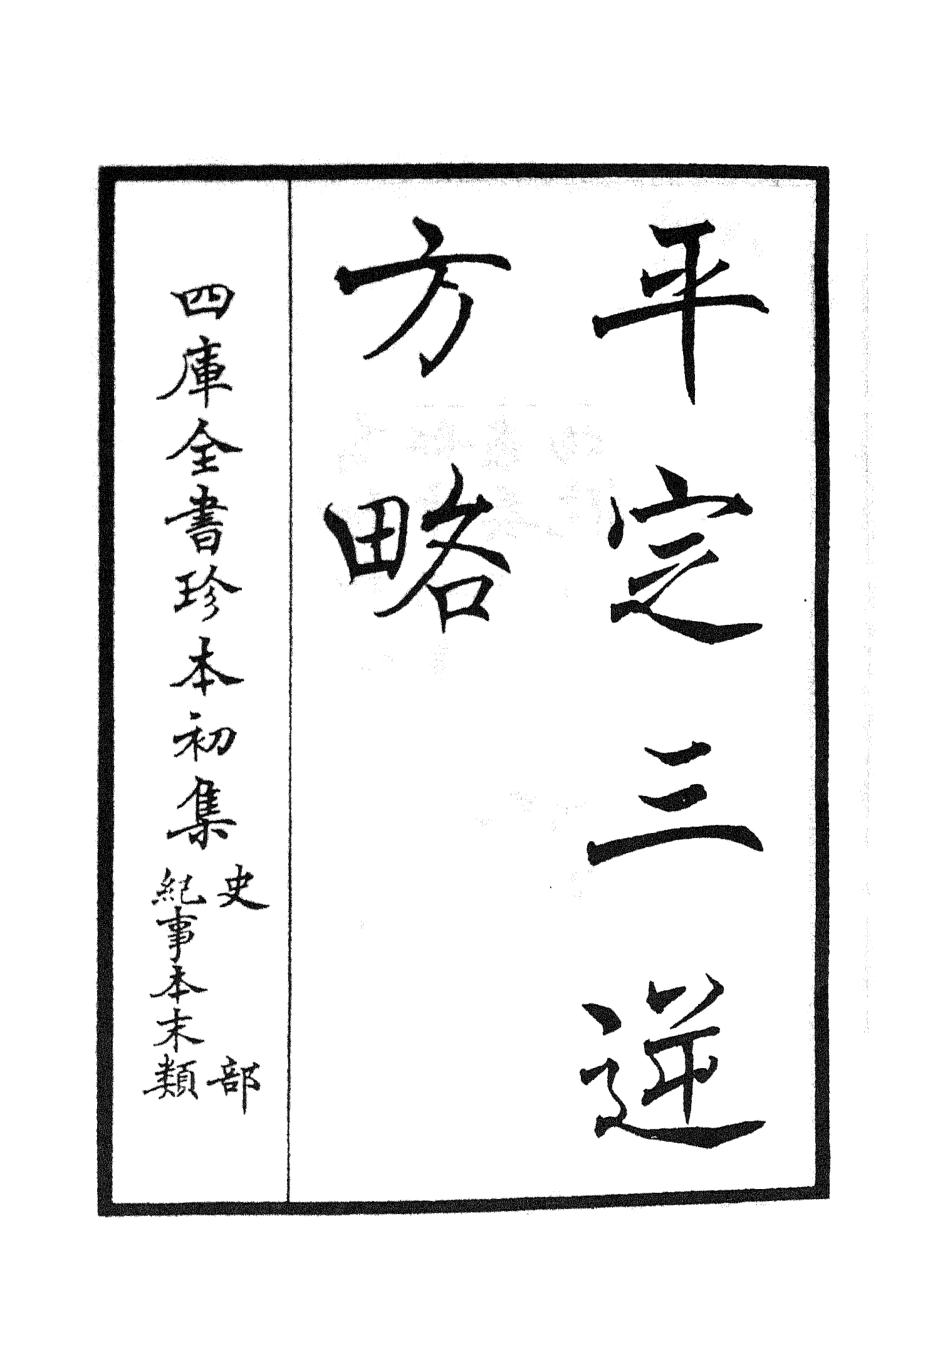 平定三逆
方略
四庫全書珍本初集
史部
紀事本末類